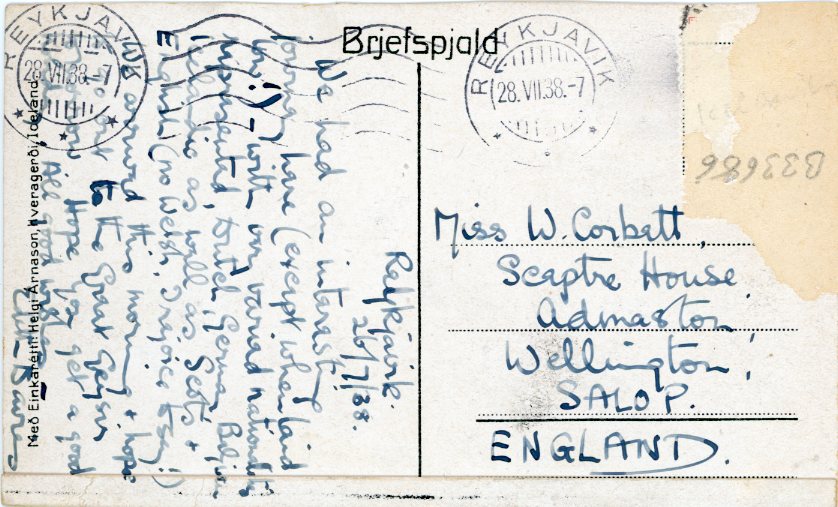 Brjefspjald
REYKJAVIK
28.VII.38.-7
REYKJAVIK
28.VII.38.-7
Reykjavik.
26/7/38.
We had an interesting
here (except when
with very varied nationalities
represented, Dutch, German, Belgian,
Icelandic as well as Scots &
English (no Welsh, I rejoice to say!)
We arrived this morning & hope
to the Great Geysir
Hope you get a good
All good wishes
Með Einkarétti: Helgi Árnason, Hveragerði, Iceland
Miss W. Corbett,
Sceptre House
Admaston
Wellington,
SALOP.
ENGLAND.
B33686